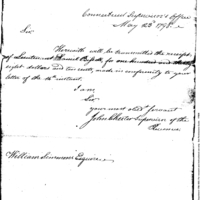 Connecticut Supervisor's Office
May 23d 1798
Sir
Herewith will be transmitted the receipt
of Lieutenant Samuel for one hundred and
eight dollars and ten cents, made in conformity to your
letter of the instant.
I am
Sir
your most obedt servant
John Chester Supervisor of the
Revenue
William Simmons Esquire